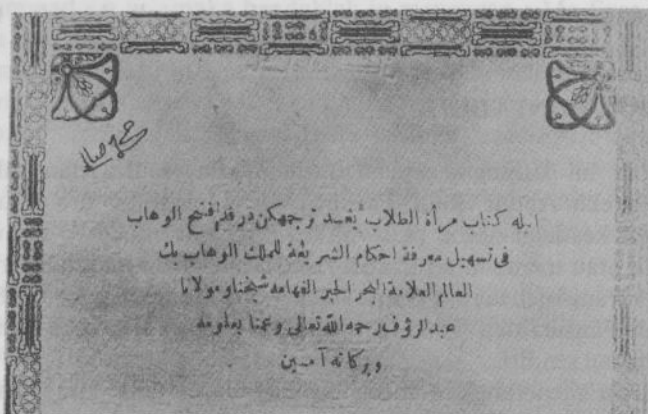 ايله كتاب مرأة الطلاب يغسد ترجمهكن درفد فتح الوهاب
فى تسهيل معرفة احكام الشريعة للملك الوهاب بك
العالم العلامة البحر الحبر الفهامه شيخنا ومولانا
عبدالرؤف رحمه الله تعالى وعمنا بعلومه
وبركاته آمين